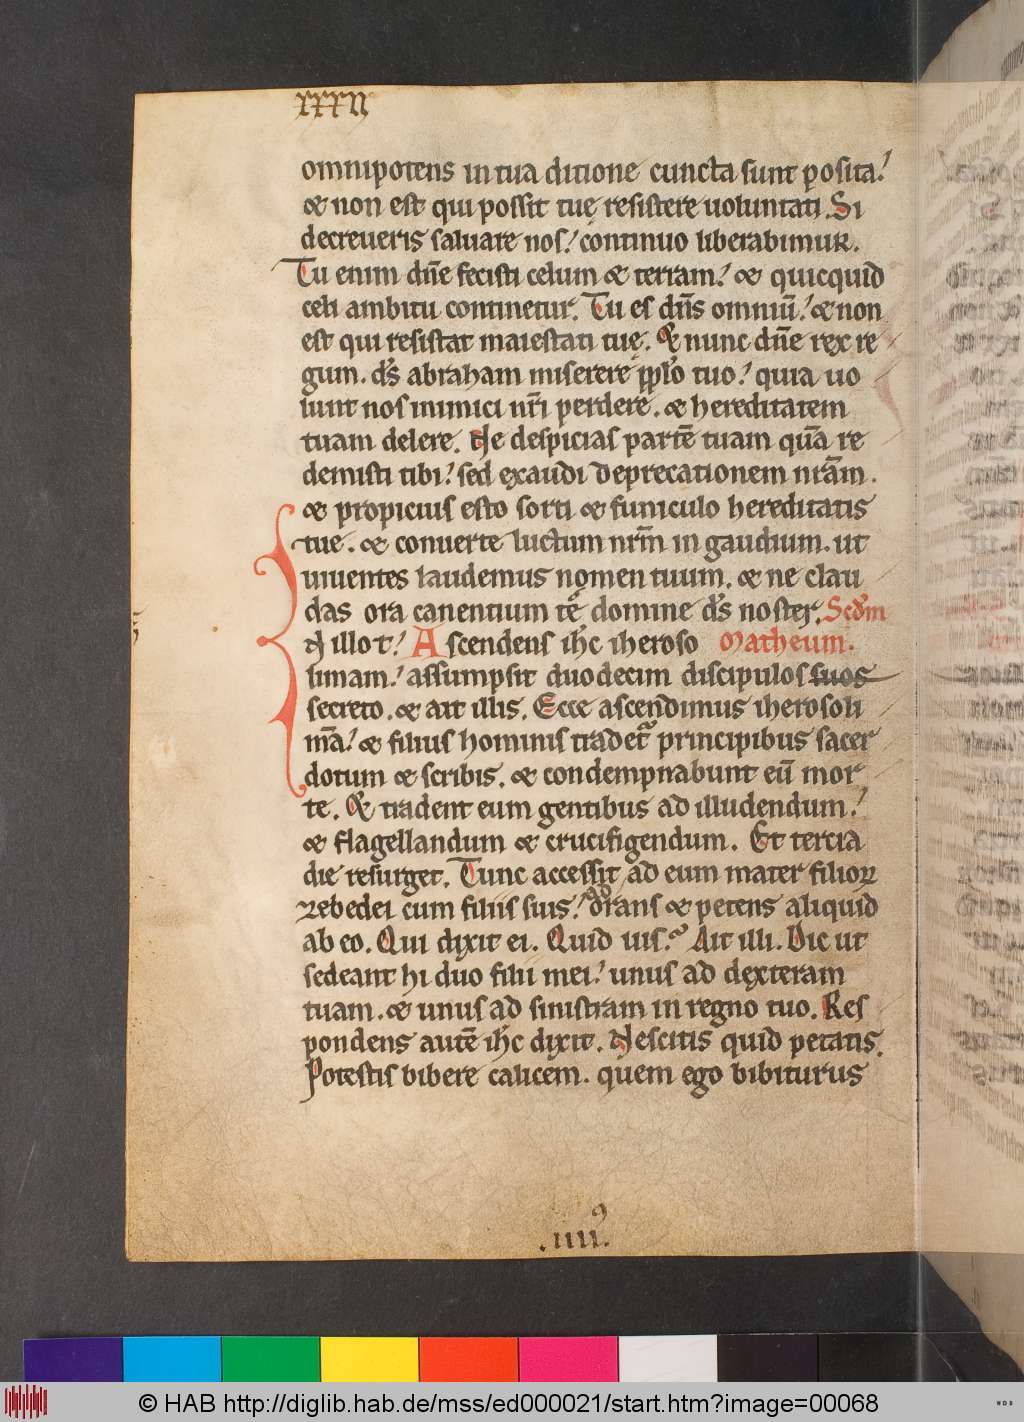 xxxii
omnipotens in tua ditione cuncta sunt posita.
& non est qui possit tuę resistere uoluntati. Si
decreueris saluare nos. continuo liberabimur.
Tu enim dn̄e fecisti celum & terram. & quicquid
celi ambitu continetur. Tu es dn̄s omniū. & non
est qui resistat maiestati tuę. & nunc dn̄e rex re
gum. ds̄ abraham miserere pplo tuo. quia uo
lunt nos inimici nr̄i perdere. & hereditatem
tuam delere. Ne despicias partē tuam quā re
demisti tibi. sed exaudi deprecationem nrām.
& propicius esto sorti & funiculo hereditatis
tue. & conuerte luctum nrm̄ in gaudium. ut
uiuentes laudemus nomen tuum. & ne clau
das ora canentium tē domine ds̄ noster. Scd̄m
In illo t. Ascendens ih̄c iheroso Matheum.
limam. assumpsit duodecim discipulos suos
secreto. & ait illis. Ecce ascendimus iherosoli
mā. & filius hominis tradet᷑ principibus sacer
dotum & scribis. & condempnabunt eū mor
te. & tradent eum gentibus ad illudendum.
& flagellandum & crucifigendum. Et tercia
die resurget. Tunc accessit ad eum mater filioꝝ
zebedei cum filiis suis. ad orans & petens aliquid
ab eo. Qui dixit ei. Quid uis. Ait illi. Dic ut
sedeant hi duo filii mei. unus ad dexteram
tuam. & unus ad sinistram in regno tuo. Res
pondens autē ih̄c dixit. Nescitis quid petatis.
Potestis bibere calicem. quem ego bibiturus
.iiii⁹.
© HAB http://diglib.hab.de/mss/ed000021/start.htm?image=00068